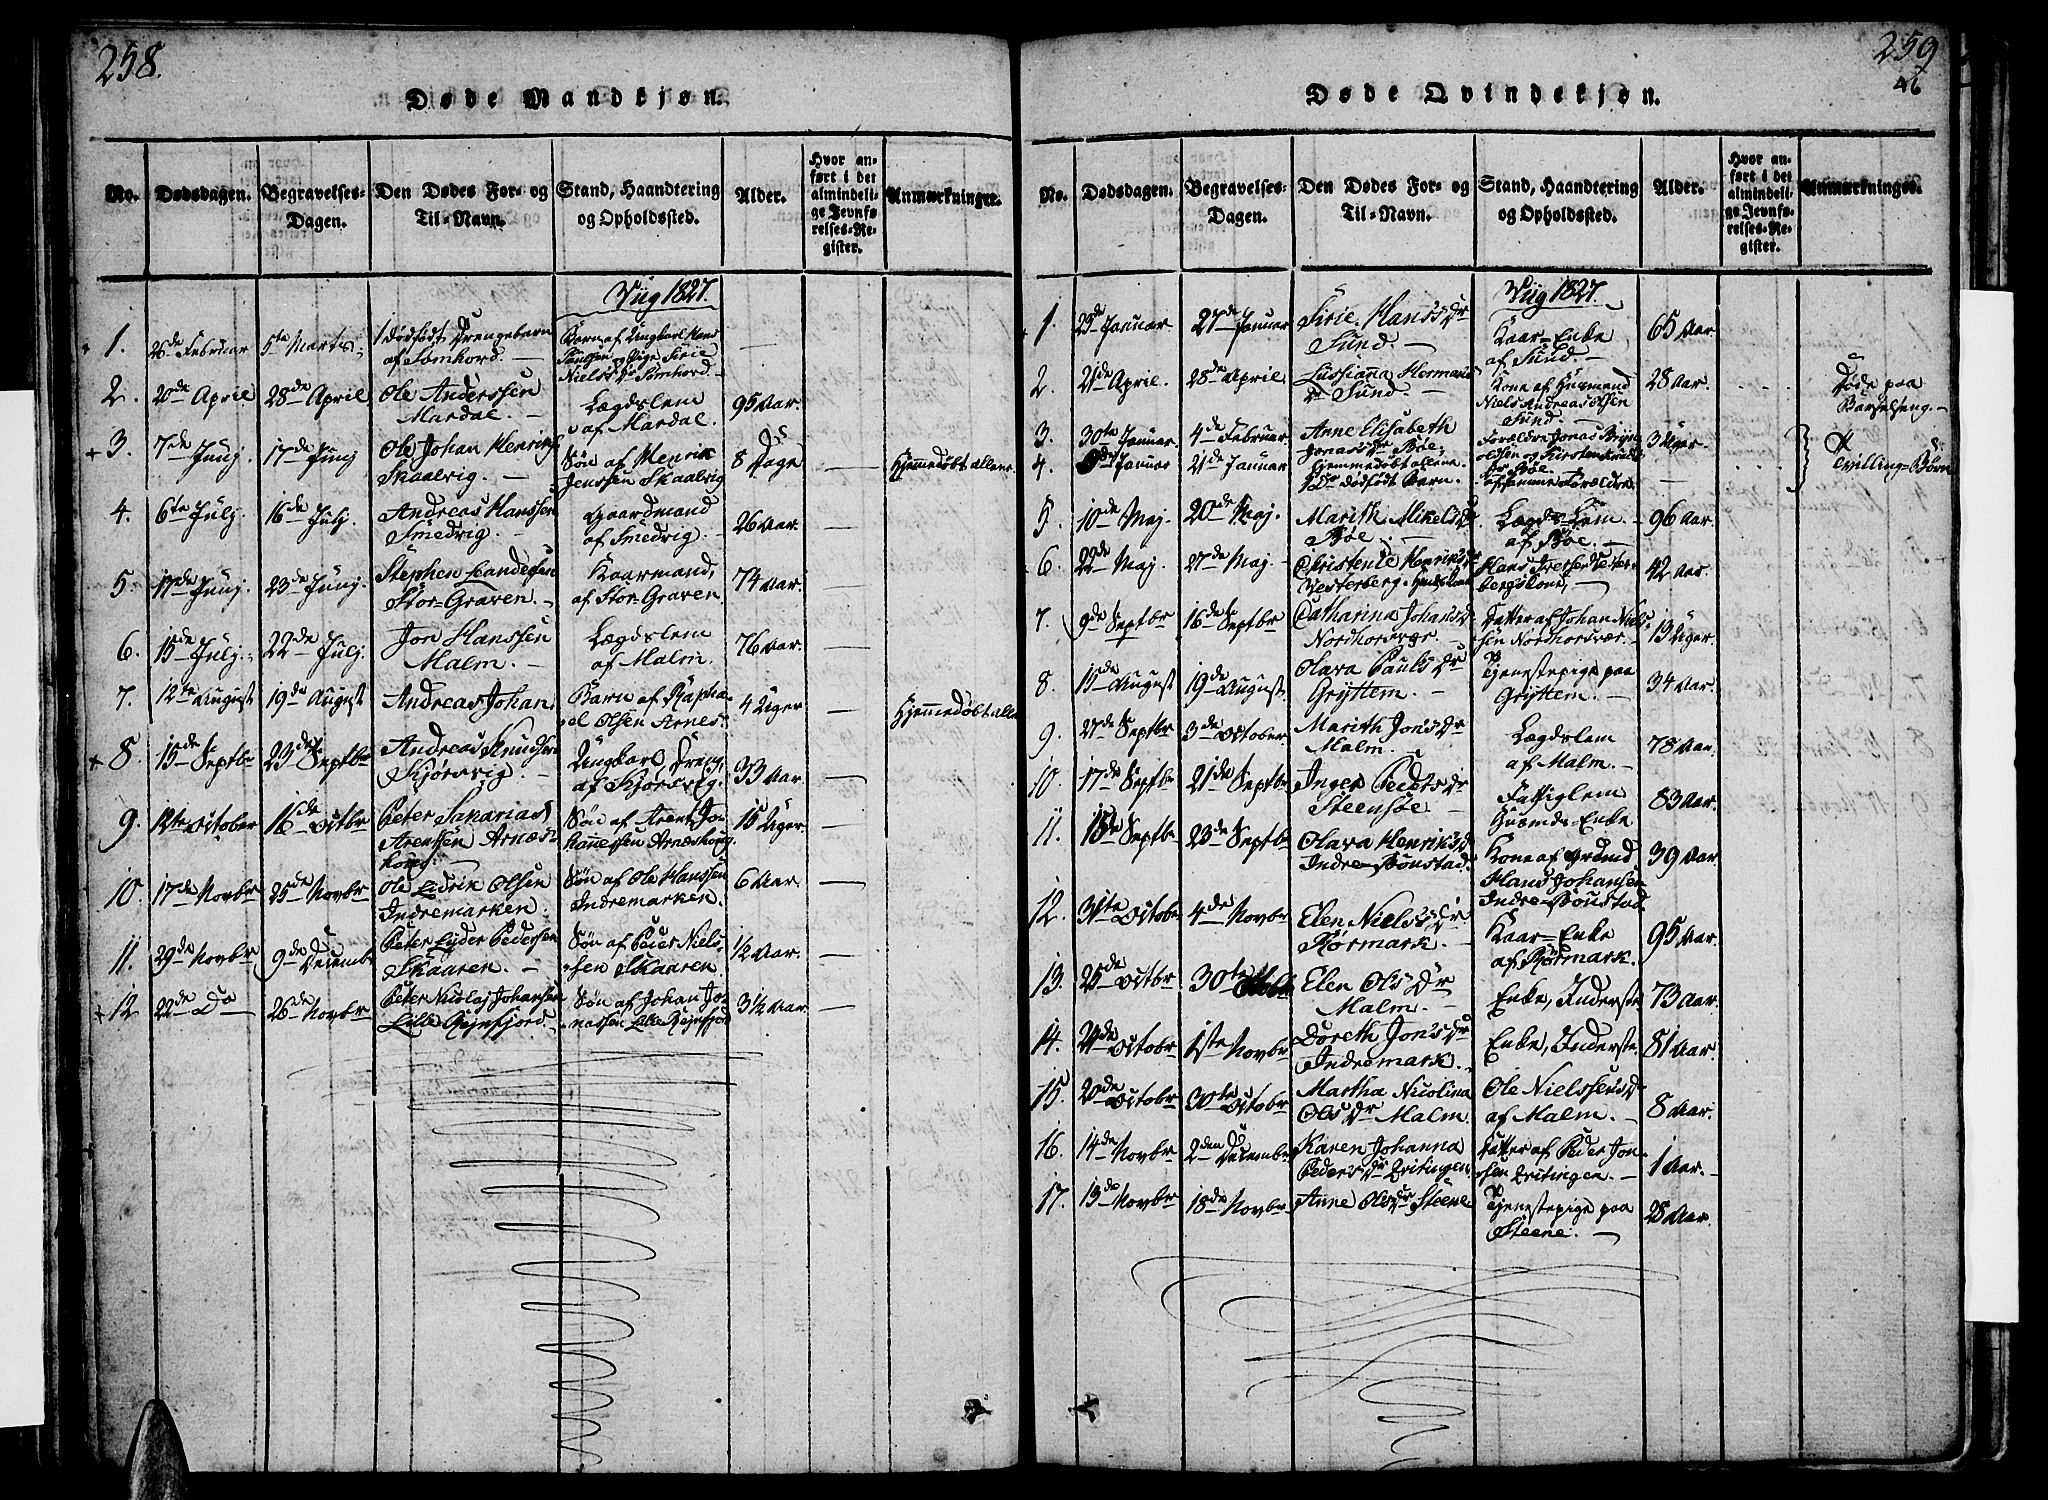 258.
Døde Mandkjøn.
No.
Dødsdagen.
Begravelses-
Dagen.
Den Dødes For- og
Til-Navn.
Stand, Haandtering
og Opholdssted.
Alder.
Hvor an-
ført i det
almindeli-
ge Jevnfø-
relses-Re-
gister.
Anmærkninger.
Viig 1827.
1. 26de Februar 5te Marts 1 Dødfødt Drengebarn
af Somhord. —
Barn af Ungkarl Hans
og Pige Sirie
Niels Dr Somhord. —
2. 20de April 28de April Ole Anderssen
Mardal. —
Lægdslem
af Mardal.
95 Aar.
+ 3. 7de Junj 17de Junj Ole Johan Henrik
Skaalvig. —
Søn af Henrik
Jenssen Skaalvig
8 Dage
Hjemmedøbt allene
4. 6te Julj. 16de Julj. Andreas Hanssen
Smedvig. —
Gaardmand
af Smedvig. —
26 Aar.
5. 17de Junj. 23de Junj. Stephen Andersen
Stor-Graven —
Kaarmand,
af Stor-Graven.
74 Aar.
6. 15de Julj. 22de Julj. Jon Hanssen
Malm. —
Lægdslem
af Malm.
76 Aar.
7. 12te August 19de August Andreas Johan
Barn af Rapha-
el Olsen Arnes
4 Uger
Hjemmedøbt allene
+ 8. 15de Septbr 23de Septbr Andreas Knudsen
Kjørsvig. —
Ungkarl, Dreng
af Kjørsvig.
33 Aar.
9. 12te October 16de Octbr Peter Sakarias
Arentsen Arnæs-
houg. —
Søn af Arent Jo-
hannessen Arnæshoug.
15 Uger.
10. 17de Novbr 25de Novbr Ole Edrik Olsen
Indremarken.
Søn af Ole Hanssen
Indremarken.
6 Aar.
11. 29de Novbr 9de December Peter Lyder Pedersen
Skaaren. —
Søn af Peder Niels-
sen Skaaren.
1/2 Aar.
+ 12 22de Do 26de Novbr Peter Nicolaj Johansen
Lille Reinfjord. —
Søn af Johan Jo-
nassen Lille Reinfjord
3 1/2 Aar.
259
Døde Qvindekjøn.
No.
Dødsdagen.
Begravelses-
Dagen.
Den Dødes For- og
Til-Navn.
Stand, Haandtering
og Opholdssted.
Alder.
Hvor an-
ført i det
almindeli-
ge Jevnfø-
relses-Re-
gister.
Anmærkninger.
Viig 1827.
+ 1. 23de Januar 27de Januar Sirie Hans Dr
Sund. —
Kaar-Enke
af Sund. —
65 Aar.
2. 21de April. 28de April Lussianna Hermans
Dr Sund. —
Kone af Huusmand
Niels Andreas Olsen
Sund. —
28 Aar.
Døde paa
Barselseng. —
3. 30te Januar. 4de Februar Anne Elisabeth
Jonas Dr Bøe,
hjemmedøbt allene.
Forældre Jonas Bryn-
oldsen og Kirsten
Bøe.
3 Uger
4. Januar 21de Januar 1 Do dødfødt Barn.
af samme Forældre.
Tvilling-Børn
5. 10de Maj. 20de Maj. Marith Mikels Dr
Bøe. —
Lægds-Lem
af Bøe. —
96 Aar.
6. 22de Maj. 27de Maj — Christense Henriks Dr
Vesterberg
Hans Iversen Vester-
bergs Kone, —
42 Aar.
7. 9de Septbr 16de Septbr Catharina Johans Dr
Nordhorsvær. —
Datter af Johan Niels-
sen Nordhorsvær.
13 Uger.
8. 15de August 19de August. Olava Pauls Dr
Gryttem. —
Tjenestepige paa
Gryttem. —
34 Aar.
9. 27de Septbr 3de October. Marith Jons Dr
Malm. —
Lægdslem
af Malm. —
78 Aar.
10. 17de Septbr 21de Septbr. Inger Peders Dr
Steensøe —
Fattiglem
Huusmds-Enke
83 Aar.
11. 18de Septbr 23de Septbr. Olava Henriks Dr
Indre-Bønstad.
Kone af
Hans Johansen
Indre-Bønstad.
39 Aar
12. 31te October 4de Novbr Elen Niels Dr
Rørmark. —
Kaar-Enke
af Rørmark.
95 Aar.
13. 25de Octbr 30te Octbr Elen Ols Dr
Malm. —
Enke, Inderste
73 Aar.
14. 24de Octobr 1ste Novbr Doreth Jons Dr
Indremark. —
Enke, Inderste.
81 Aar.
15. 20de Octobr 30te Octobr Martha Nicolina
Ols Dr Malm.
Ole Nielssens D
af Malm. —
8 Aar.
16. 14de Novbr 2den Decembr Karen Johanna
Peders Dr
Datter af Peder Jon-
sen
1 Aar.
17. 13de Novbr 18de Novbr Anne Ols Dr Steene
Tjenestepige paa
Steene. —
28 Aar.